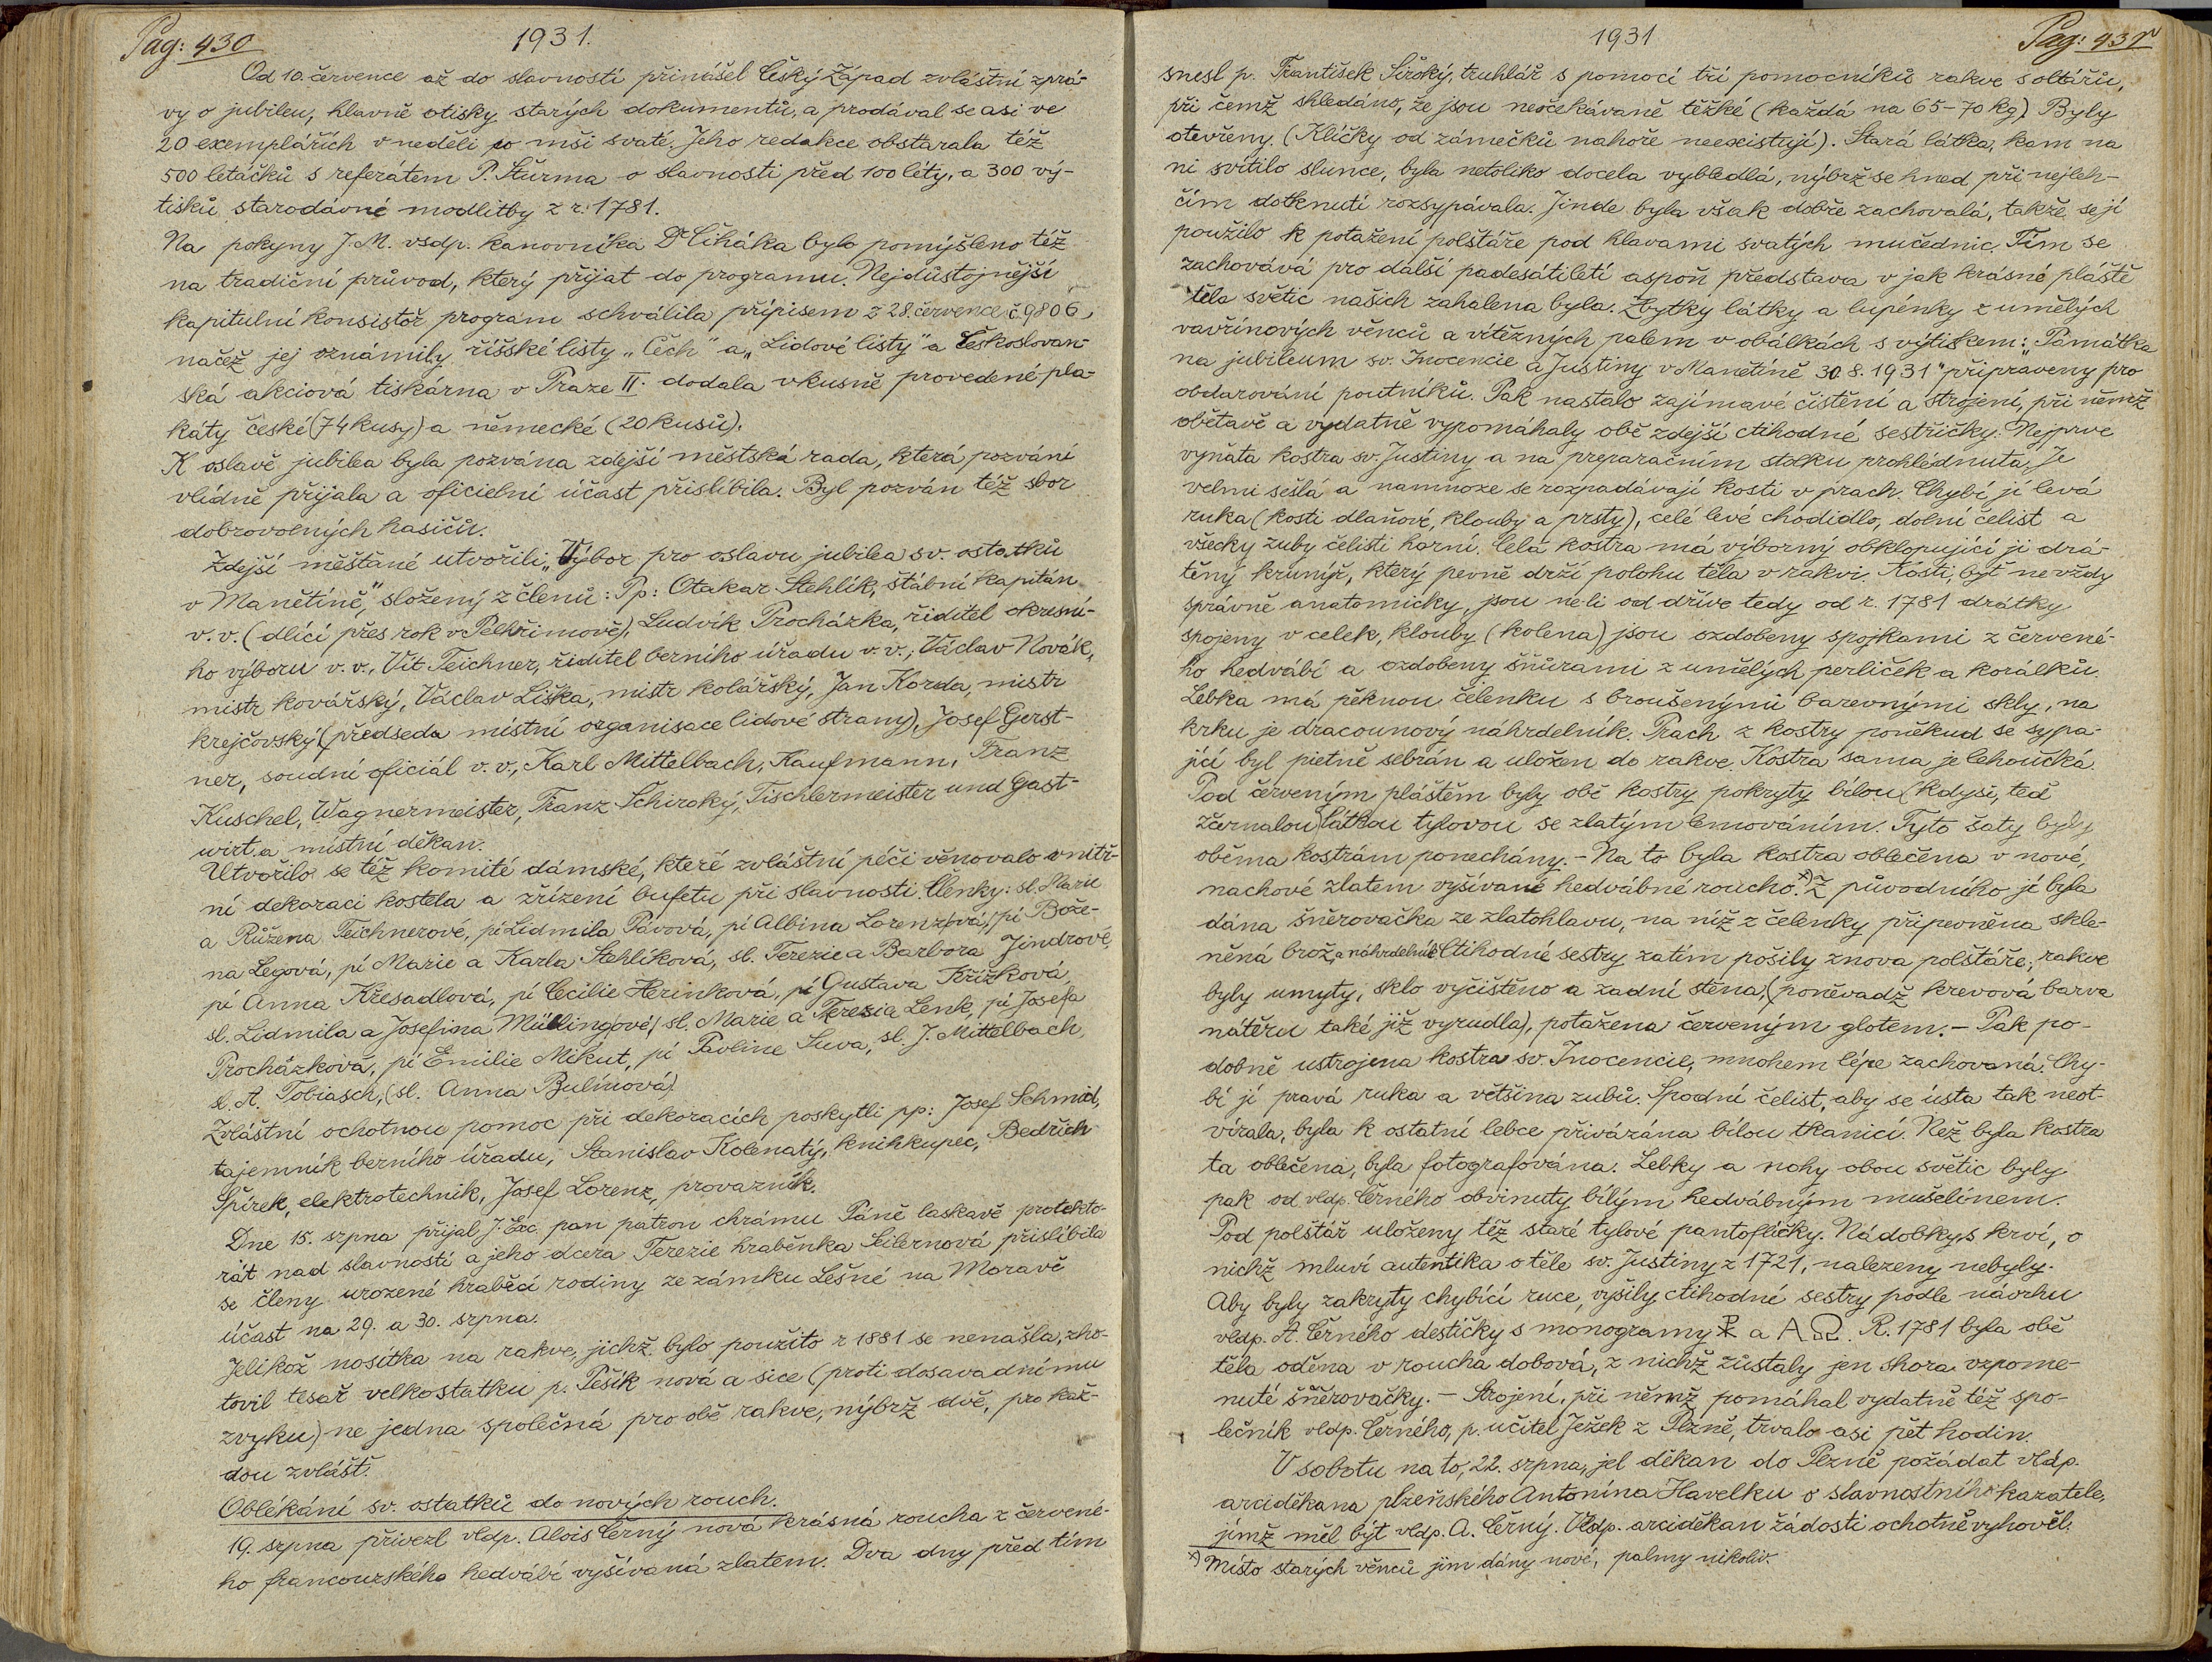 Pag: 430
1931.
Od 10. července až do slavností přinášel Český Západ zvláštní zprá-
vy o jubileu, hlavně otisky starých dokumentů, a prodával se asi ve
20 exemplářích v neděli po mši svaté. Jeho redakce obstarala též
500 letáčků s referátem P. Šturma o slavnosti před 100 léty, a 300 vý-
tisků starodávné modlitby z r. 1781.
Na pokyny J. M. vsdp. kanovníka Dr Číháka bylo pomýšleno též
na tradiční průvod, který přijat do programu. Nejdůstojnější
kapitulní konsistoř program schválila přípisem z 28. července č. 9806,
načež jej oznámily říšské listy „Čech" a „Lidové listy" a Českoslovan-
ská akciová tiskárna v Praze II. dodala vkusně provedené pla-
káty české (74 kusy) a německé (20 kusů).
K oslavě jubilea byla pozvána zdejší městská rada, která pozvání
vlídně přijala a oficielní účast přislíbila. Byl pozván též sbor
dobrovolných hasičů.
Zdejší měšťané utvořili „Výbor pro oslavu jubilea sv. ostatků
v Manětíně," složený z členů: Pp: Otakar Stehlík, štábní kapitán
v. v. (dlící přes rok v Pelhřimově), Ludvík Procházka, řiditel okresní-
ho výboru v. v., Vít Teichner, řiditel berního úřadu v. v., Václav Novák,
mistr kovářský, Václav Liška, mistr kolářský, Jan Korda, mistr
krejčovský (předseda místní organisace lidové strany), Josef Gerst-
ner, soudní oficiál v. v., Karl Mittelbach, Kaufmann, Franz
Kuschel, Wagnermeister, Franz Schiroký, Tischlermeister und Gast-
wirt. a místní děkan.
Utvořilo se též komité dámské, které zvláštní péči věnovalo vnitř-
ní dekoraci kostela a zřízení bufetu při slavnosti. Členky: sl. Marie
a Růžena Teichnerové, pí Lidmila Pávová, pí Albina Lorenzová, pí Bože-
na Legová, pí Marie a Karla Stehlíková, sl. Terezie a Barbora Jindrové,
pí Anna Křesadlová, pí Cecilie Herinková, pí Gustava Křížková,
sl. Lidmila a Josefina Müllingové, sl. Marie a Terezia Lenk, pí Josefa
Procházková, pí Emilie Mikut, pí Pavline Suva, sl. J. Mittelbach,
sl. A. Tobiasch, (sl. Anna Bulínová)
Zvláštní ochotnou pomoc při dekoracích poskytli pp: Josef Schmid,
tajemník berního úřadu, Stanislav Kolenatý, knihkupec, Bedřich
Špírek, elektrotechnik, Josef Lorenz, provazník.
Dne 15. srpna přijal J. Exc. pan patron chrámu Páně laskavě protekto-
rát nad slavností a jeho dcera Terezie hraběnka Seilernová přislíbila
se členy urozené hraběcí rodiny ze zámku Lešné na Moravě
účast na 29. a 30. srpna.
Jelikož nosítka na rakve, jichž bylo použito r 1881 se nenašla, zho-
tovil tesař velkostatku p. Pešík nová a sice (proti dosavadnímu
zvyku) ne jedna společná pro obě rakve, nýbrž dvě, pro kaž-
dou zvlášť.
Oblékání sv. ostatků do nových rouch.
19. srpna přivezl vldp. Alois Černý nová krásná roucha z červené-
ho francouzského hedvábí vyšívaná zlatem. Dva dny před tím
1931
Pag: 431
snesl p. František Široký, truhlář s pomocí tří pomocníků rakve s oltářů,
při čemž shledáno, že jsou neočekávaně těžké (každá na 65-70 kg). Byly
otevřeny. (Klíčky od zámečků nahoře neexistují). Stará látka, kam na
ni svítilo slunce, byla netoliko docela vybledlá, nýbrž se hned při nejleh-
čím dotknutí rozsypávala. Jinde byla však dobře zachovalá, takže se jí
použilo k potažení polštáře pod hlavami svatých mučednic. Tím se
zachovává pro další padesátiletí aspoň představa v jak krásné pláště
těla světic našich zahalena byla. Zbytky látky a lupénky z umělých
vavřínových věnců a vítězných palem v obálkách s výtiskem: „Památka
na jubileum sv. Inocencie a Justiny v Manětíně 30. 8. 1931" připraveny pro
obdarování poutníků. Pak nastalo zajímavé čistění a strojení, při němž
obětavě a vydatně vypomáhaly obě zdejší ctihodné sestřičky. Nejprve
vyňata kostra sv. Justiny a na preparačním stolku prohlédnuta. Je
velmi sešlá a namnoze se rozpadávají kosti v prach. Chybí jí levá
ruka (kosti dlaňové, klouby a prsty), celé levé chodidlo, dolní čelist a
všecky zuby čelisti horní. Celá kostra má výborný obklopující ji drá-
těný krunýř, který pevně drží polohu těla v rakvi. Kosti, byť ne vždy
správně anatomicky, jsou neli od dříve tedy od r. 1781 drátky
spojeny v celek, klouby (kolena) jsou ozdobeny spojkami z červené-
ho hedvábí a ozdobeny šňůrami z umělých perliček a korálků.
Lebka má pěknou čelenku s broušenými barevnými skly, na
krku je dracounový náhrdelník. Prach z kostry poněkud se sypa-
jící byl pietně sebrán a uložen do rakve. Kostra sama je lehoučká.
Pod červeným pláštěm byly obě kostry pokryty bílou (kdysi, teď
zčernalou) látkou tylovou se zlatým lemováním. Tyto šaty byly
oběma kostrám ponechány. - Na to byla kostra oblečena v nové,
nachové zlatem vyšívané hedvábné roucho. x) Z původního jí byla
dána šněrovačka ze zlatohlavu, na níž z čelenky připevněna skle-
něná brož, a náhrdelník. Ctihodné sestry zatím pošily znova polštáře, rakve
byly umyty, sklo vyčištěno a zadní stěna, (poněvadž krevová barva
nátěru také již vyrudla), potažena červeným glotem. - Pak po-
dobně ustrojena kostra sv. Inocencie, mnohem lépe zachovaná. Chy-
bí jí pravá ruka a většina zubů. Spodní čelist, aby se ústa tak neot-
vírala, byla k ostatní lebce přivázána bílou tkanicí. Než byla kostra
ta oblečena, byla fotografována. Lebky a nohy obou světic byly
pak od vldp. Černého obvinuty bílým hedvábným mušelínem.
Pod polštář uloženy též staré tylové pantoflíčky. Nádobky s krví, o
nichž mluví autentika o těle sv. Justiny z 1721, nalezeny nebyly.
Aby byly zakryty chybící ruce, vyšily ctihodné sestry podle návrhu
vldp. A. Černého destičky s monogramy ☧ a A Ω. R. 1781 byla obě
těla oděna v roucha dobová, z nichž zůstaly jen shora vzpome-
nuté šněrovačky. - Strojení, při němž pomáhal vydatně též spo-
lečník vldp. Černého, p. učitel Ježek z Plzně, trvalo asi pět hodin.
V sobotu na to, 22. srpna, jel děkan do Plzně požádat vldp.
arciděkana plzeňského Antonína Havelku o slavnostního kazatele,
jímž měl být vldp. A. Černý. Vldp. arciděkan žádosti ochotně vyhověl.
x) Místo starých věnců jim dány nové, palmy nikoliv.